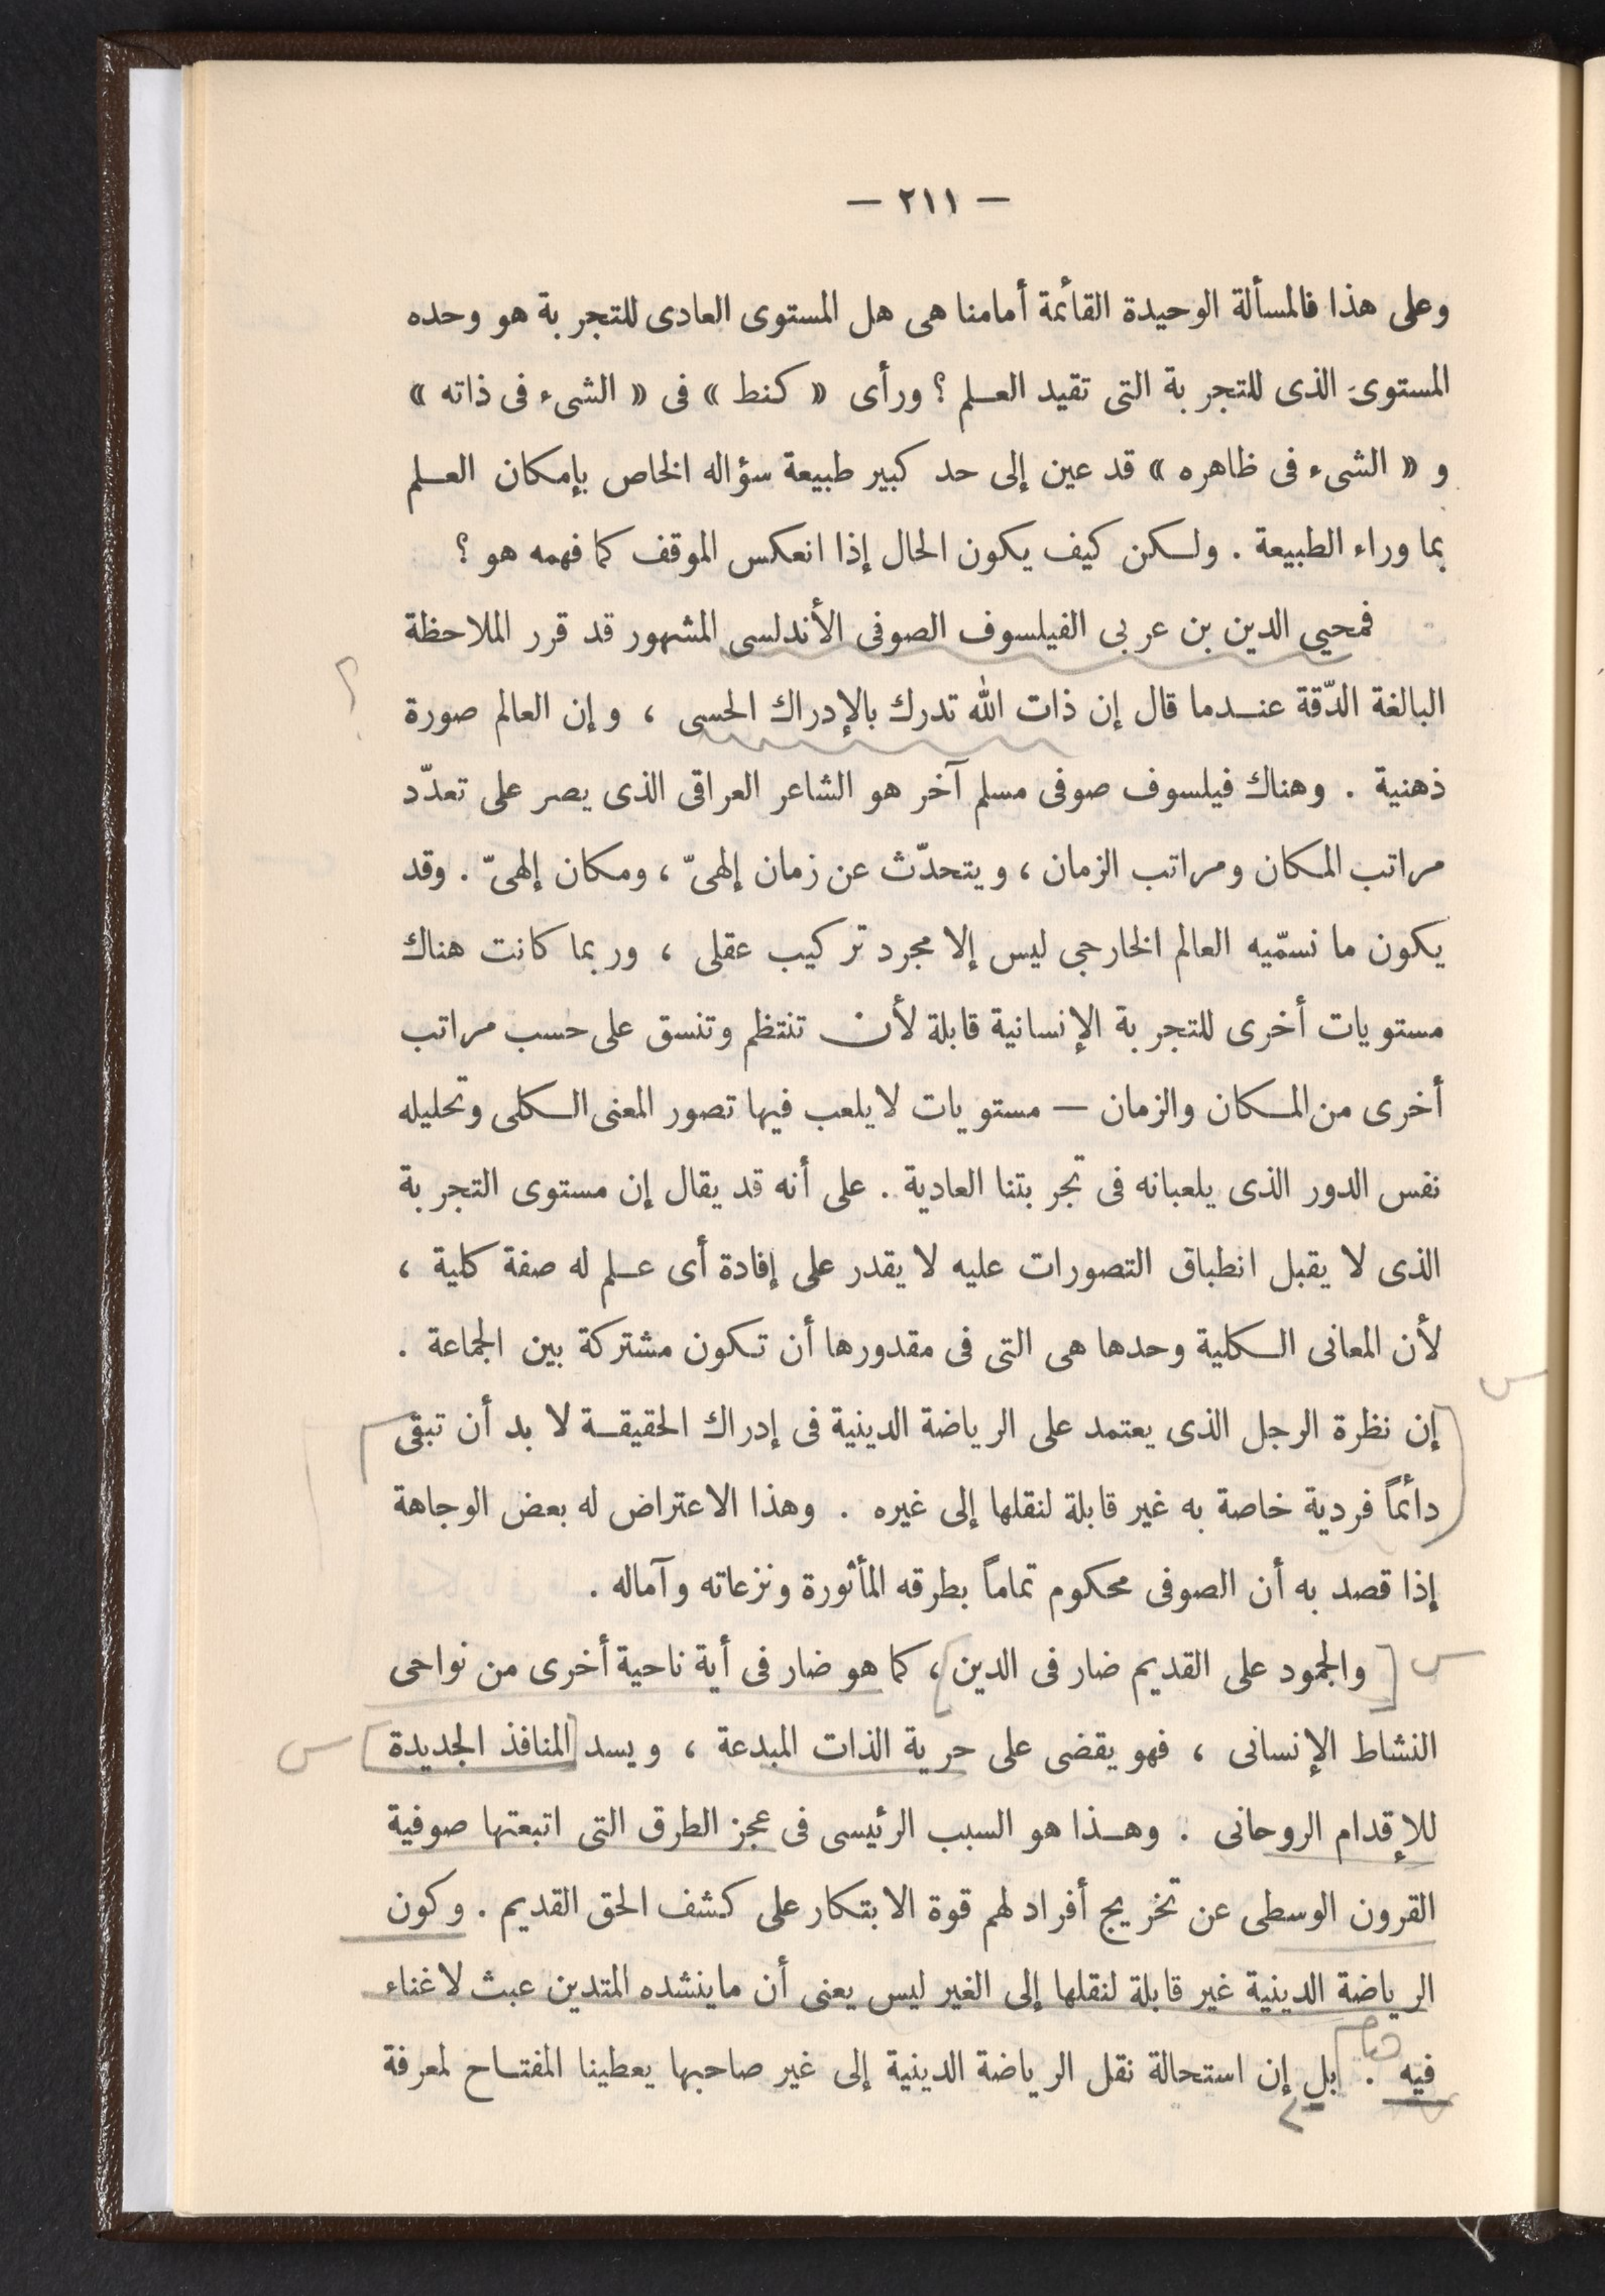 — ٢١١ —
وعلى هذا فالمسألة الوحيدة القائمة أمامنا هى هل المستوى العادى للتجربة هو وحده
المستوى الذى للتجربة التى تقيد العلم ؟ ورأى « كنط » فى « الشىء فى ذاته »
و « الشىء فى ظاهره » قد عين إلى حد كبير طبيعة سؤاله الخاص بإمكان العلم
بما وراء الطبيعة . ولكن كيف يكون الحال إذا انعكس الموقف كما فهمه هو ؟
فمحيي الدين بن عربى الفيلسوف الصوفى الأندلسى المشهور قد قرر الملاحظة
البالغة الدّقة عندما قال إن ذات الله تدرك بالإدراك الحسى ، وإن العالم صورة
؟
ذهنية . وهناك فيلسوف صوفى مسلم آخر هو الشاعر العراقى الذى يصر على تعدّد
مراتب المكان ومراتب الزمان ، ويتحدّث عن زمان إلهىّ ، ومكان إلهىّ . وقد
يكون ما نسمّيه العالم الخارجى ليس إلا مجرد تركيب عقلى ، وربما كانت هناك
مستويات أخرى للتجربة الإنسانية قابلة لأن تنتظم وتنسق على حسب مراتب
أخرى من المكان والزمان — مستويات لا يلعب فيها تصور المعنى الكلى وتحليله
نفس الدور الذى يلعبانه فى تجربتنا العادية . على أنه قد يقال إن مستوى التجربة
الذى لا يقبل انطباق التصورات عليه لا يقدر على إفادة أى علم له صفة كلية ،
لأن المعانى الكلية وحدها هى التى فى مقدورها أن تكون مشتركة بين الجماعة .
س
إن نظرة الرجل الذى يعتمد على الرياضة الدينية فى إدراك الحقيقة لا بد أن تبقى
دائماً فردية خاصة به غير قابلة لنقلها إلى غيره . وهذا الاعتراض له بعض الوجاهة
إذا قصد به أن الصوفى محكوم تماماً بطرقه المأثورة ونزعاته وآماله .
س [ والجمود على القديم ضار فى الدين ] ، كما هو ضار فى أية ناحية أخرى من نواحى
النشاط الإنسانى ، فهو يقضى على حرية الذات المبدعة ، ويسد [ المنافذ الجديدة ] س
للإقدام الروحانى . وهذا هو السبب الرئيسى فى عجز الطرق التى اتبعتها صوفية
القرون الوسطى عن تخريج أفراد لهم قوة الابتكار على كشف الحق القديم . وكون
الرياضة الدينية غير قابلة لنقلها إلى الغير ليس يعنى أن ماينشده المتدين عبث لا غناء
فيه . بل إن استحالة نقل الرياضة الدينية إلى غير صاحبها يعطينا المفتاح لمعرفة